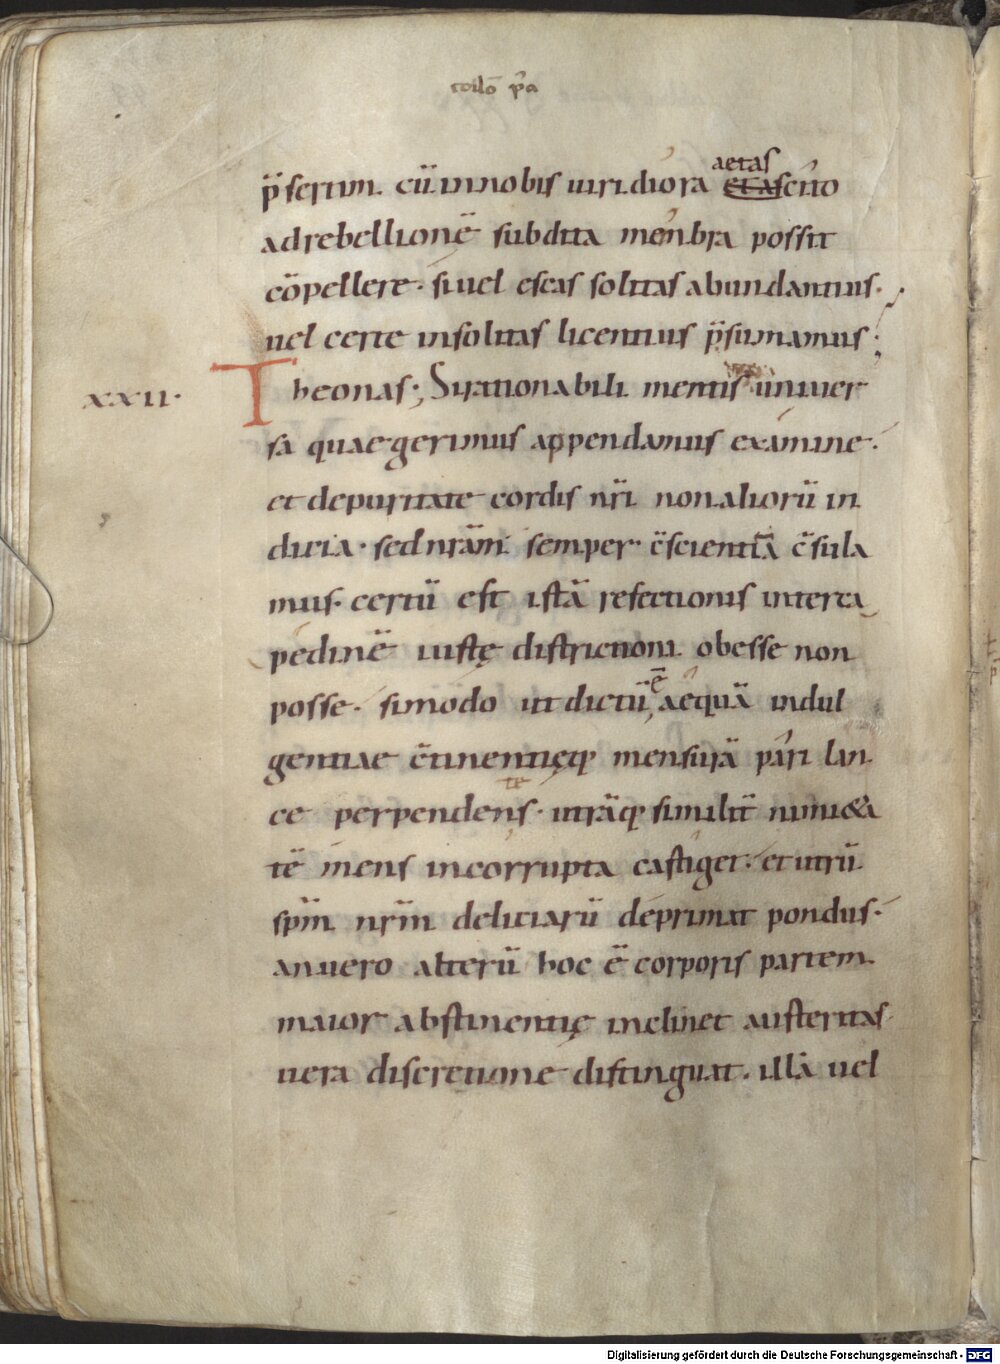 p̄sertim cū in nobis uiridiora aetas etas cito
ad rebellionē subdita menbra possit
cōpellere· si uel escas solitas abundantius·
uel certe insolitas licentius p̄sumamus;
XXII· Theonas; Si rationabili mentis uniuer
sa quae gerimus appendamus examine·
et de puritate cordis nr̄i non aliorū in
dicia· sed nrām semper c̄scientiā c̄sula
mus· certū est istā refectionis interca
pedinē iustę districtioni obesse non
posse· si modo ut dictū ē aequā indul
gentiae c̄tinentięq; mensurā pari lan
ce perpendens· utrāq; similit̄ nimi&a
te
tē mens incorrupta castiget· et utrū
spm̄ nrm̄ deliciarū deprimat pondus·
an uero alterū hoc ē corporis partem
maior abstinentię inclinet austeritas
uera discretione distinguat· illā uel
Digitalisierung gefördert durch die Deutsche Forschungsgemeinschaft - DFG